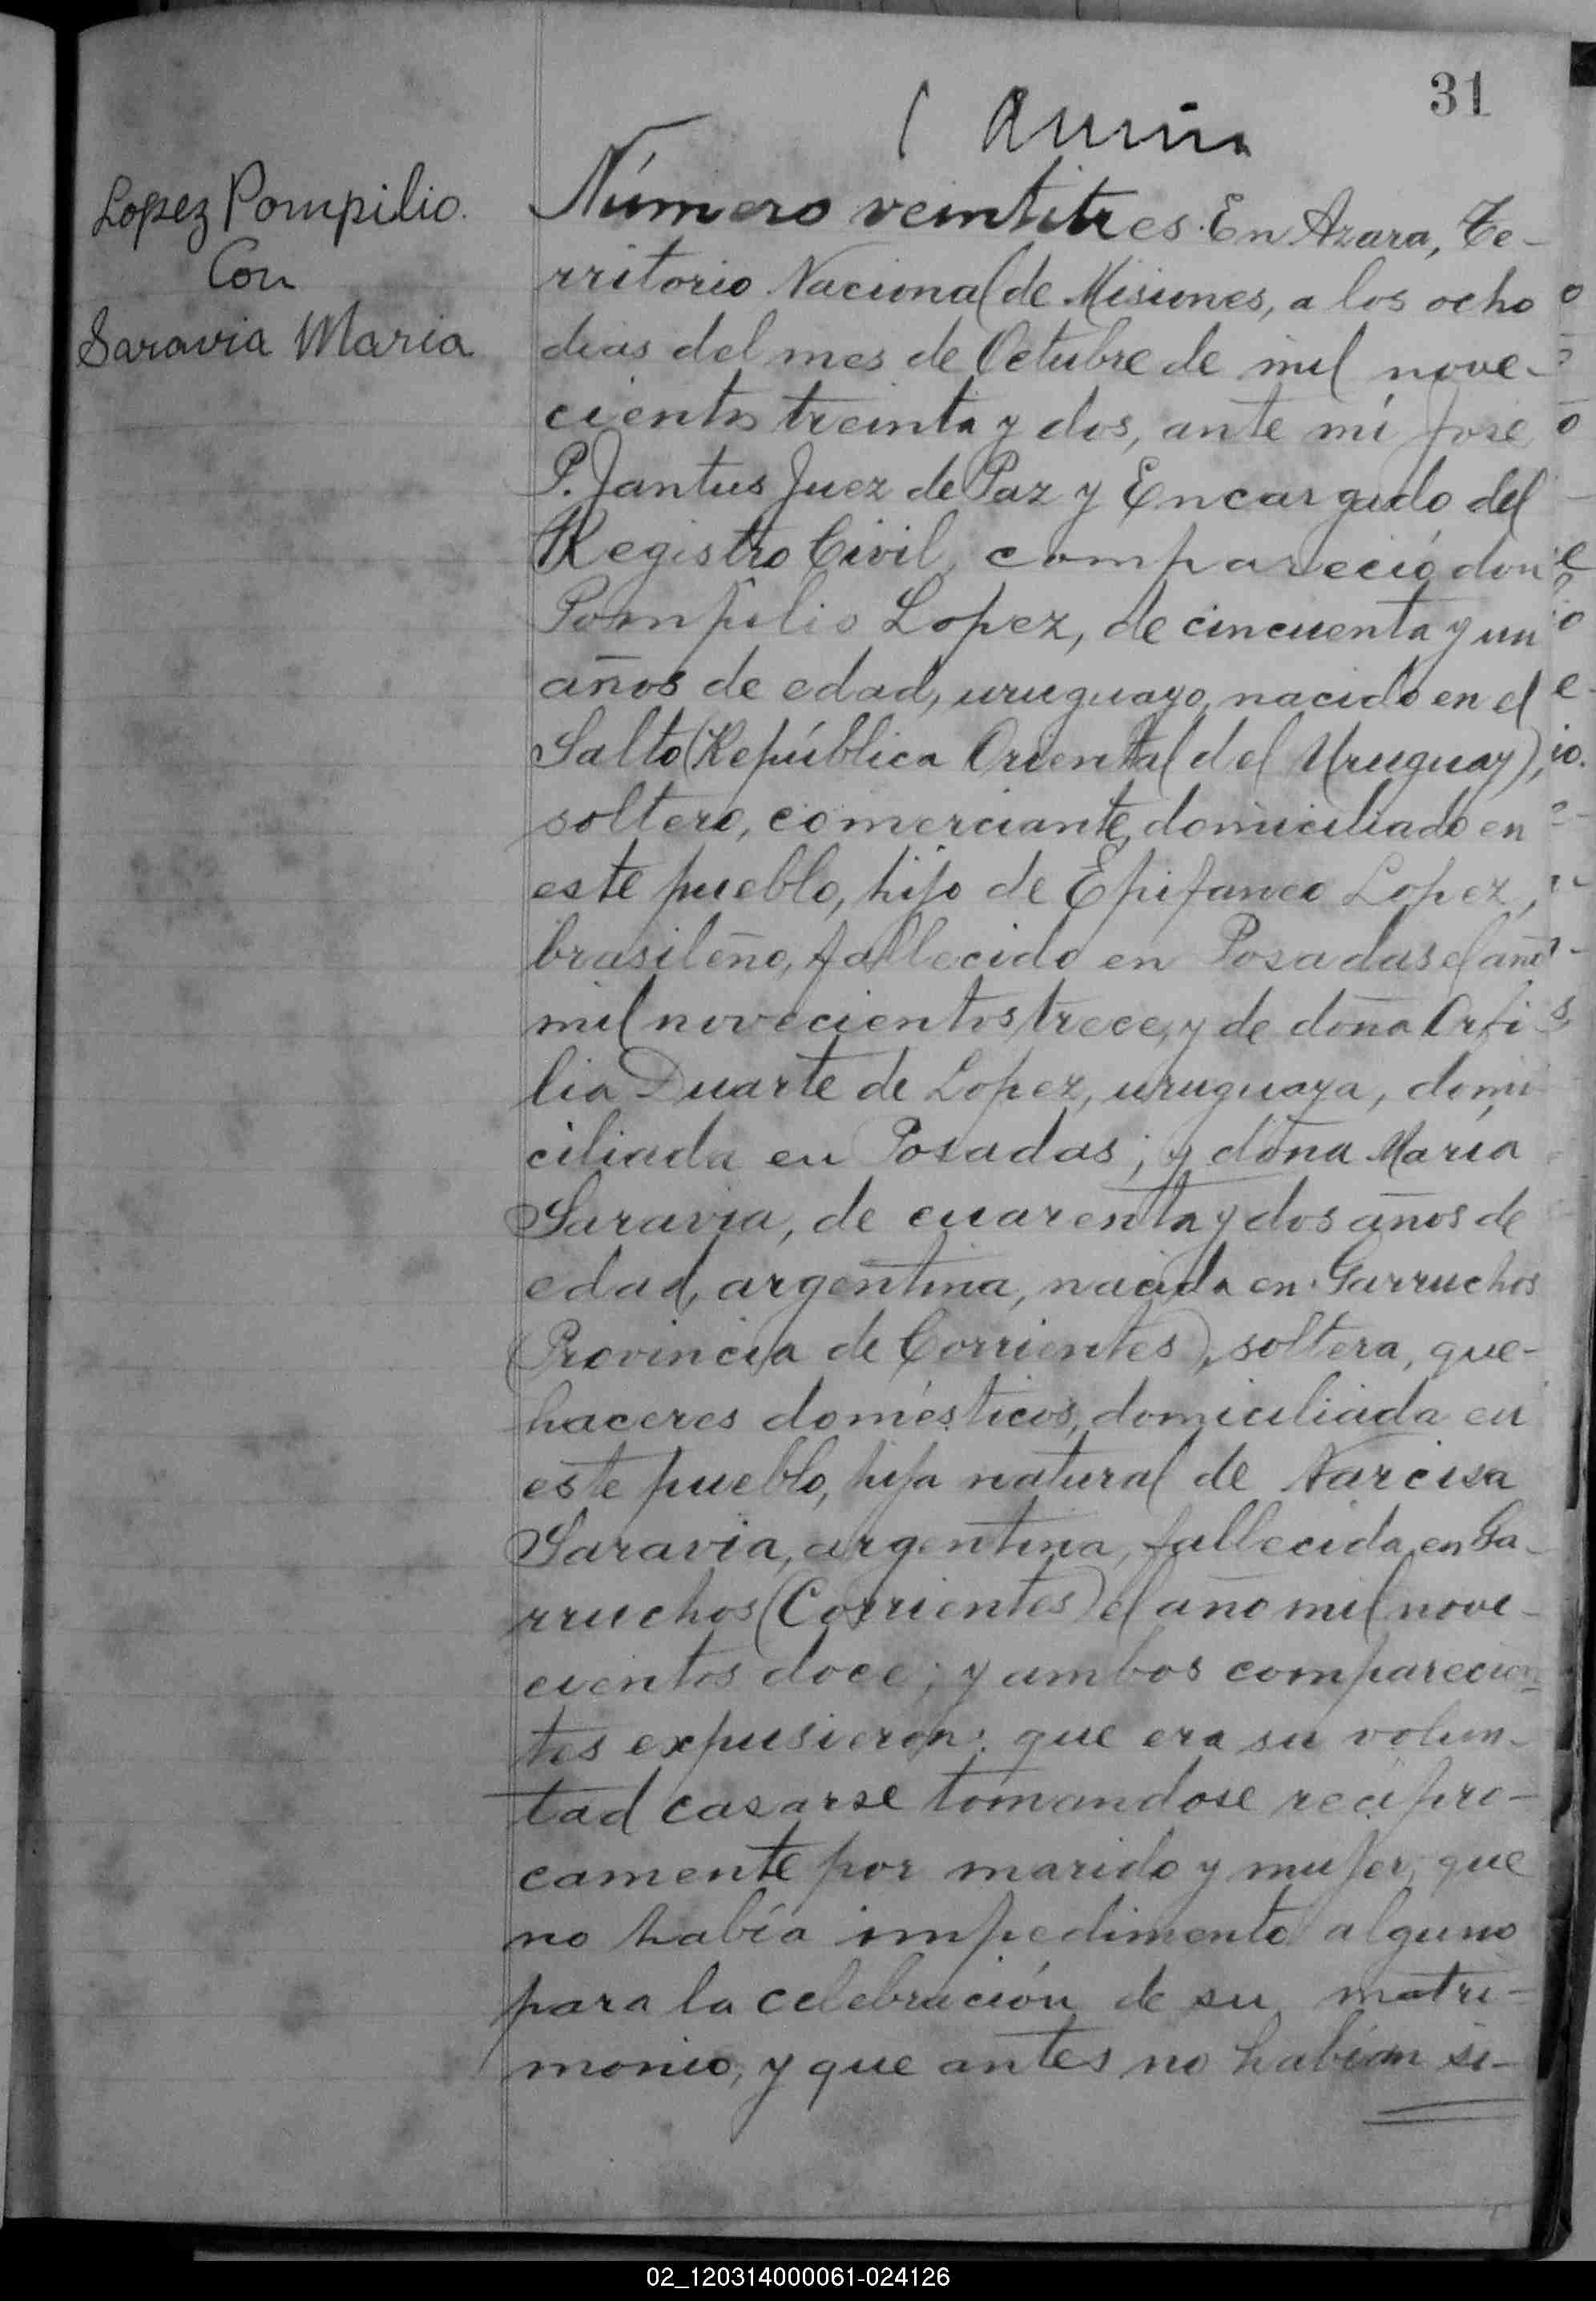 31
Lopez Pompilio.
Con
Saravia Maria
Número veintitres. En Azara, Te-
rritorio Nacional de Misiones, a los ocho
dias del mes de Octubre de mil nove-
cientos treinta y dos, ante mí José
P. Jantus Juez de Paz y Encargado del
Registro Civil, compareció don
Pompilio Lopez, de cincuenta y un
años de edad, uruguayo, nacido en el
Salto (República Oriental del Uruguay),
soltero, comerciante, domiciliado en
este pueblo, hijo de Epifaneo Lopez,
brasileño, fallecido en Posadas el año
mil novecientos trece, y de doña Orfi
lia Duarte de Lopez, uruguaya, domi
ciliada en Posadas; y doña María
Saravia, de cuarenta y dos años de
edad, argentina, nacida en Garruchos
(Provincia de Corrientes), soltera, que-
haceres domésticos, domiciliada en
este pueblo, hija natural de Narcisa
Saravia, argentina, fallecida en Ga-
rruchos (Corrientes) el año mil nove-
cientos doce; y ambos comparecien-
tes expusieron: que era su volun-
tad casarse tomandose recipro-
camente por marido y mujer, que
no había impedimento alguno
para la celebración de su matri-
monio, y que antes no habían si-
02_120314000061-024126